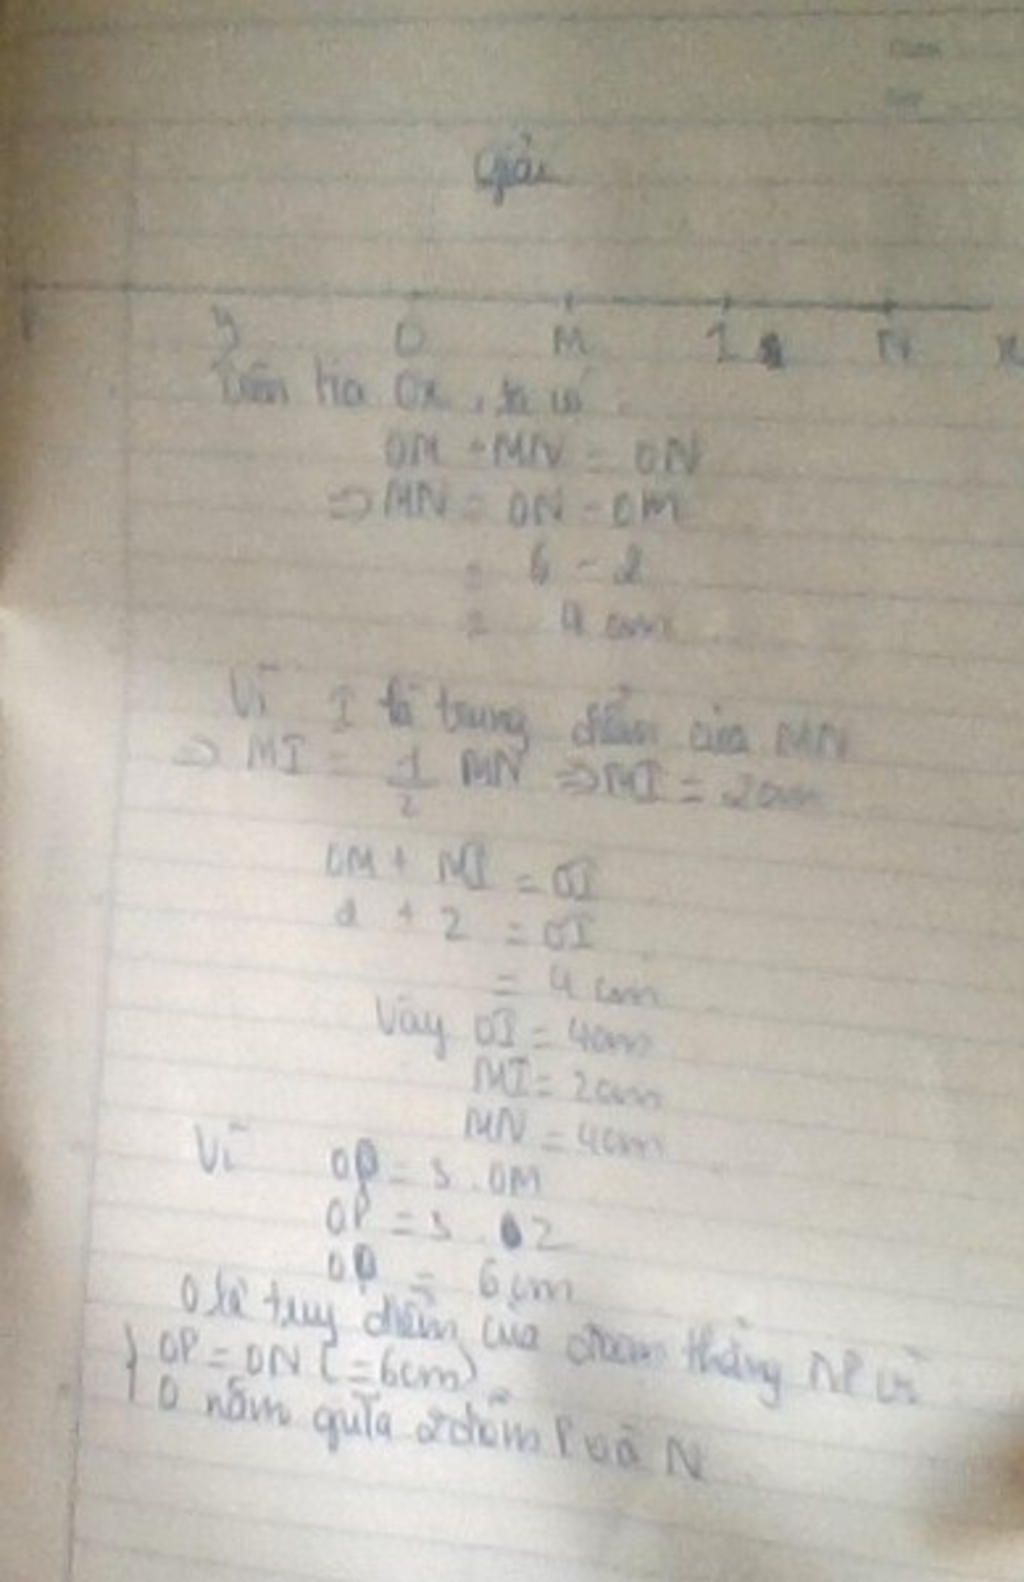 Giải
y O M I N x
Trên tia Ox, ta có
OM + MN = ON
=> MN = ON - OM
= 6 - 2
= 4 cm
Vì I là trung điểm của MN
=> MI = 1/2 MN => MI = 2cm
OM + MI = OI
2 + 2 = OI
= 4 cm
Vậy OI = 4cm
MI = 2cm
MN = 4cm
Vì OP = 3 . OM
OP = 3 . 2
OP = 6cm
O là trug điểm của đoạn thẳng NP vì
} OP = ON (=6cm)
O nằm giữa 2 điểm P và N